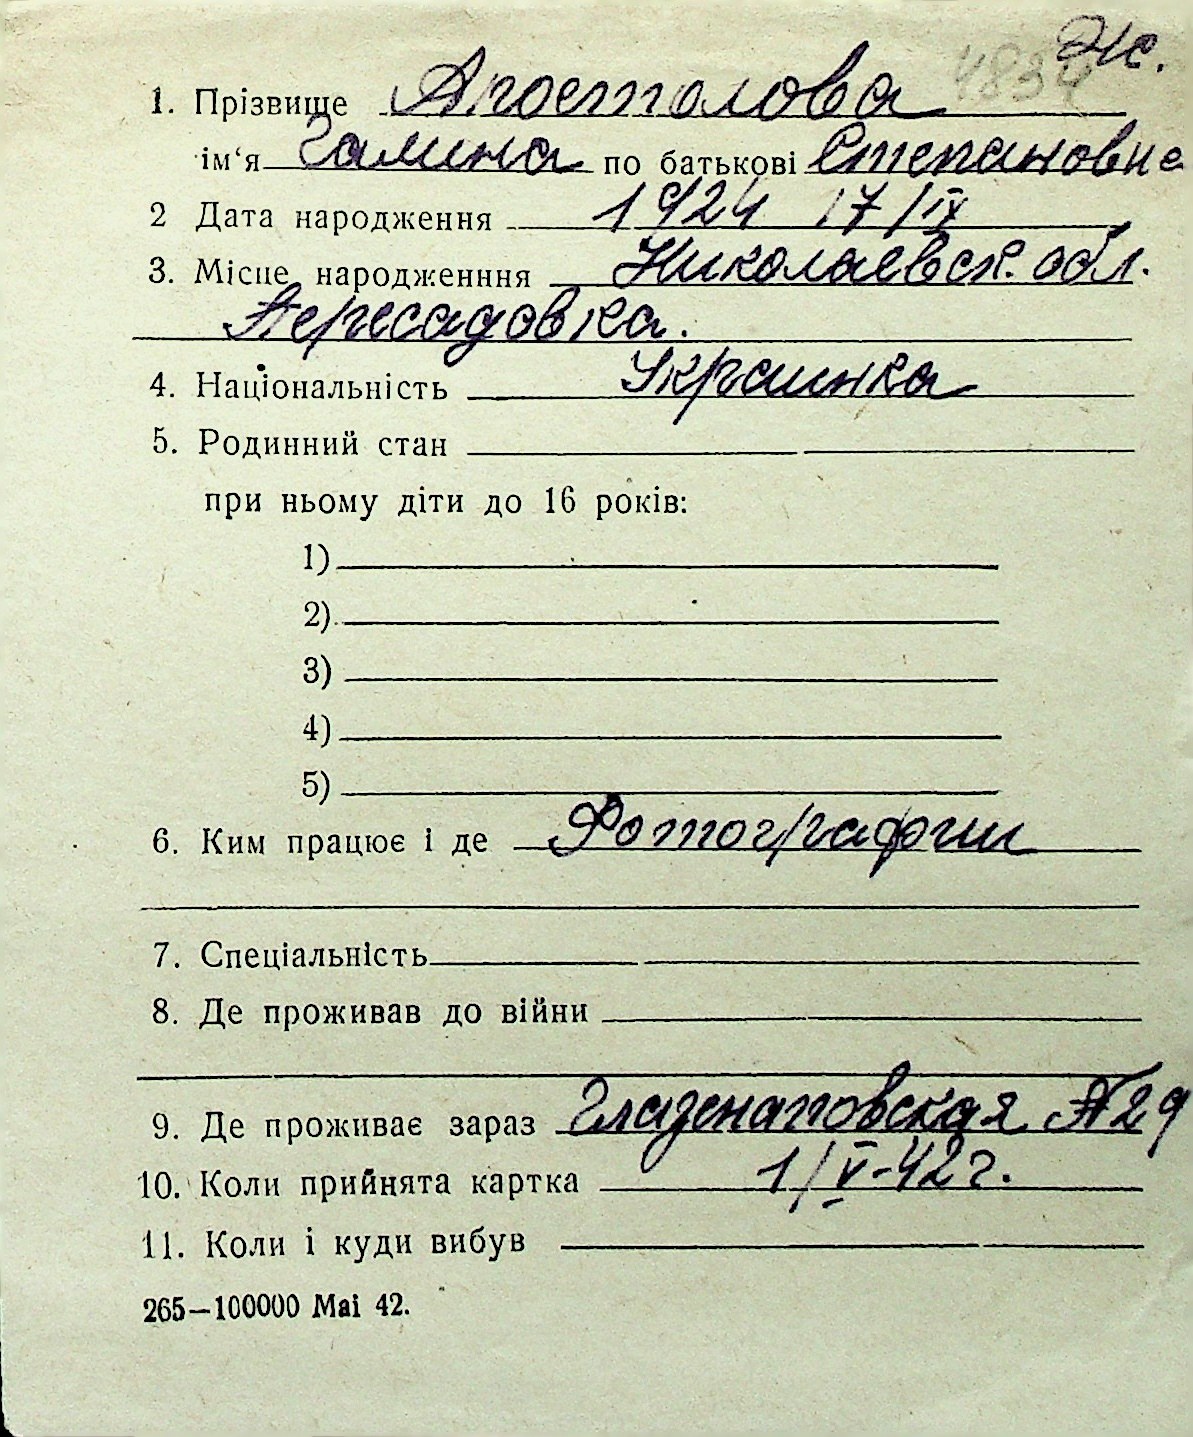 Ж.
4834
1. Прізвище Апостолова
ім‘я Галина по батькові Степановна
2 Дата народження 1924 17/IX
3. Місце народженння Николаевск. обл.
Пересадовка.
4. Національність Украинка
5. Родинний стан
при ньому діти до 16 років:
1)
2)
3)
4)
5)
6. Ким працює і де Фотографии
7. Спеціальність
8. Де проживав до війни
9. Де проживає зараз Глазенаповская №29
10. Коли прийнята картка 1/V-42г.
11. Коли і куди вибув
265—100000 Mai 42.